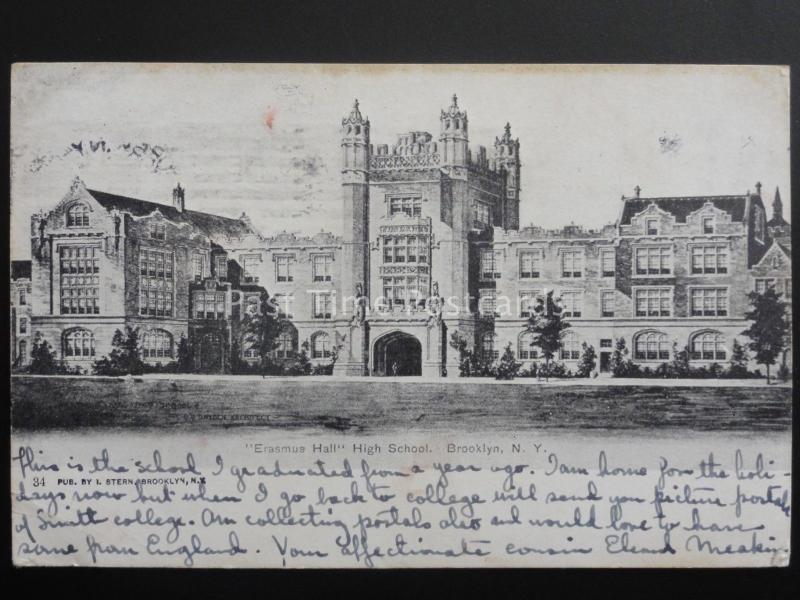 Past Time Postcards
"Erasmus Hall" High School. Brooklyn, N. Y.
This is the school I graduated from a year ago. I am home for the holi-
34 PUB. BY I. STERN, BROOKLYN, N.Y.
days now but when I go back to college will send you picture postals
of Smith college. Am collecting postals also and would love to have
some from England. Your affectionate cousin Eleanor